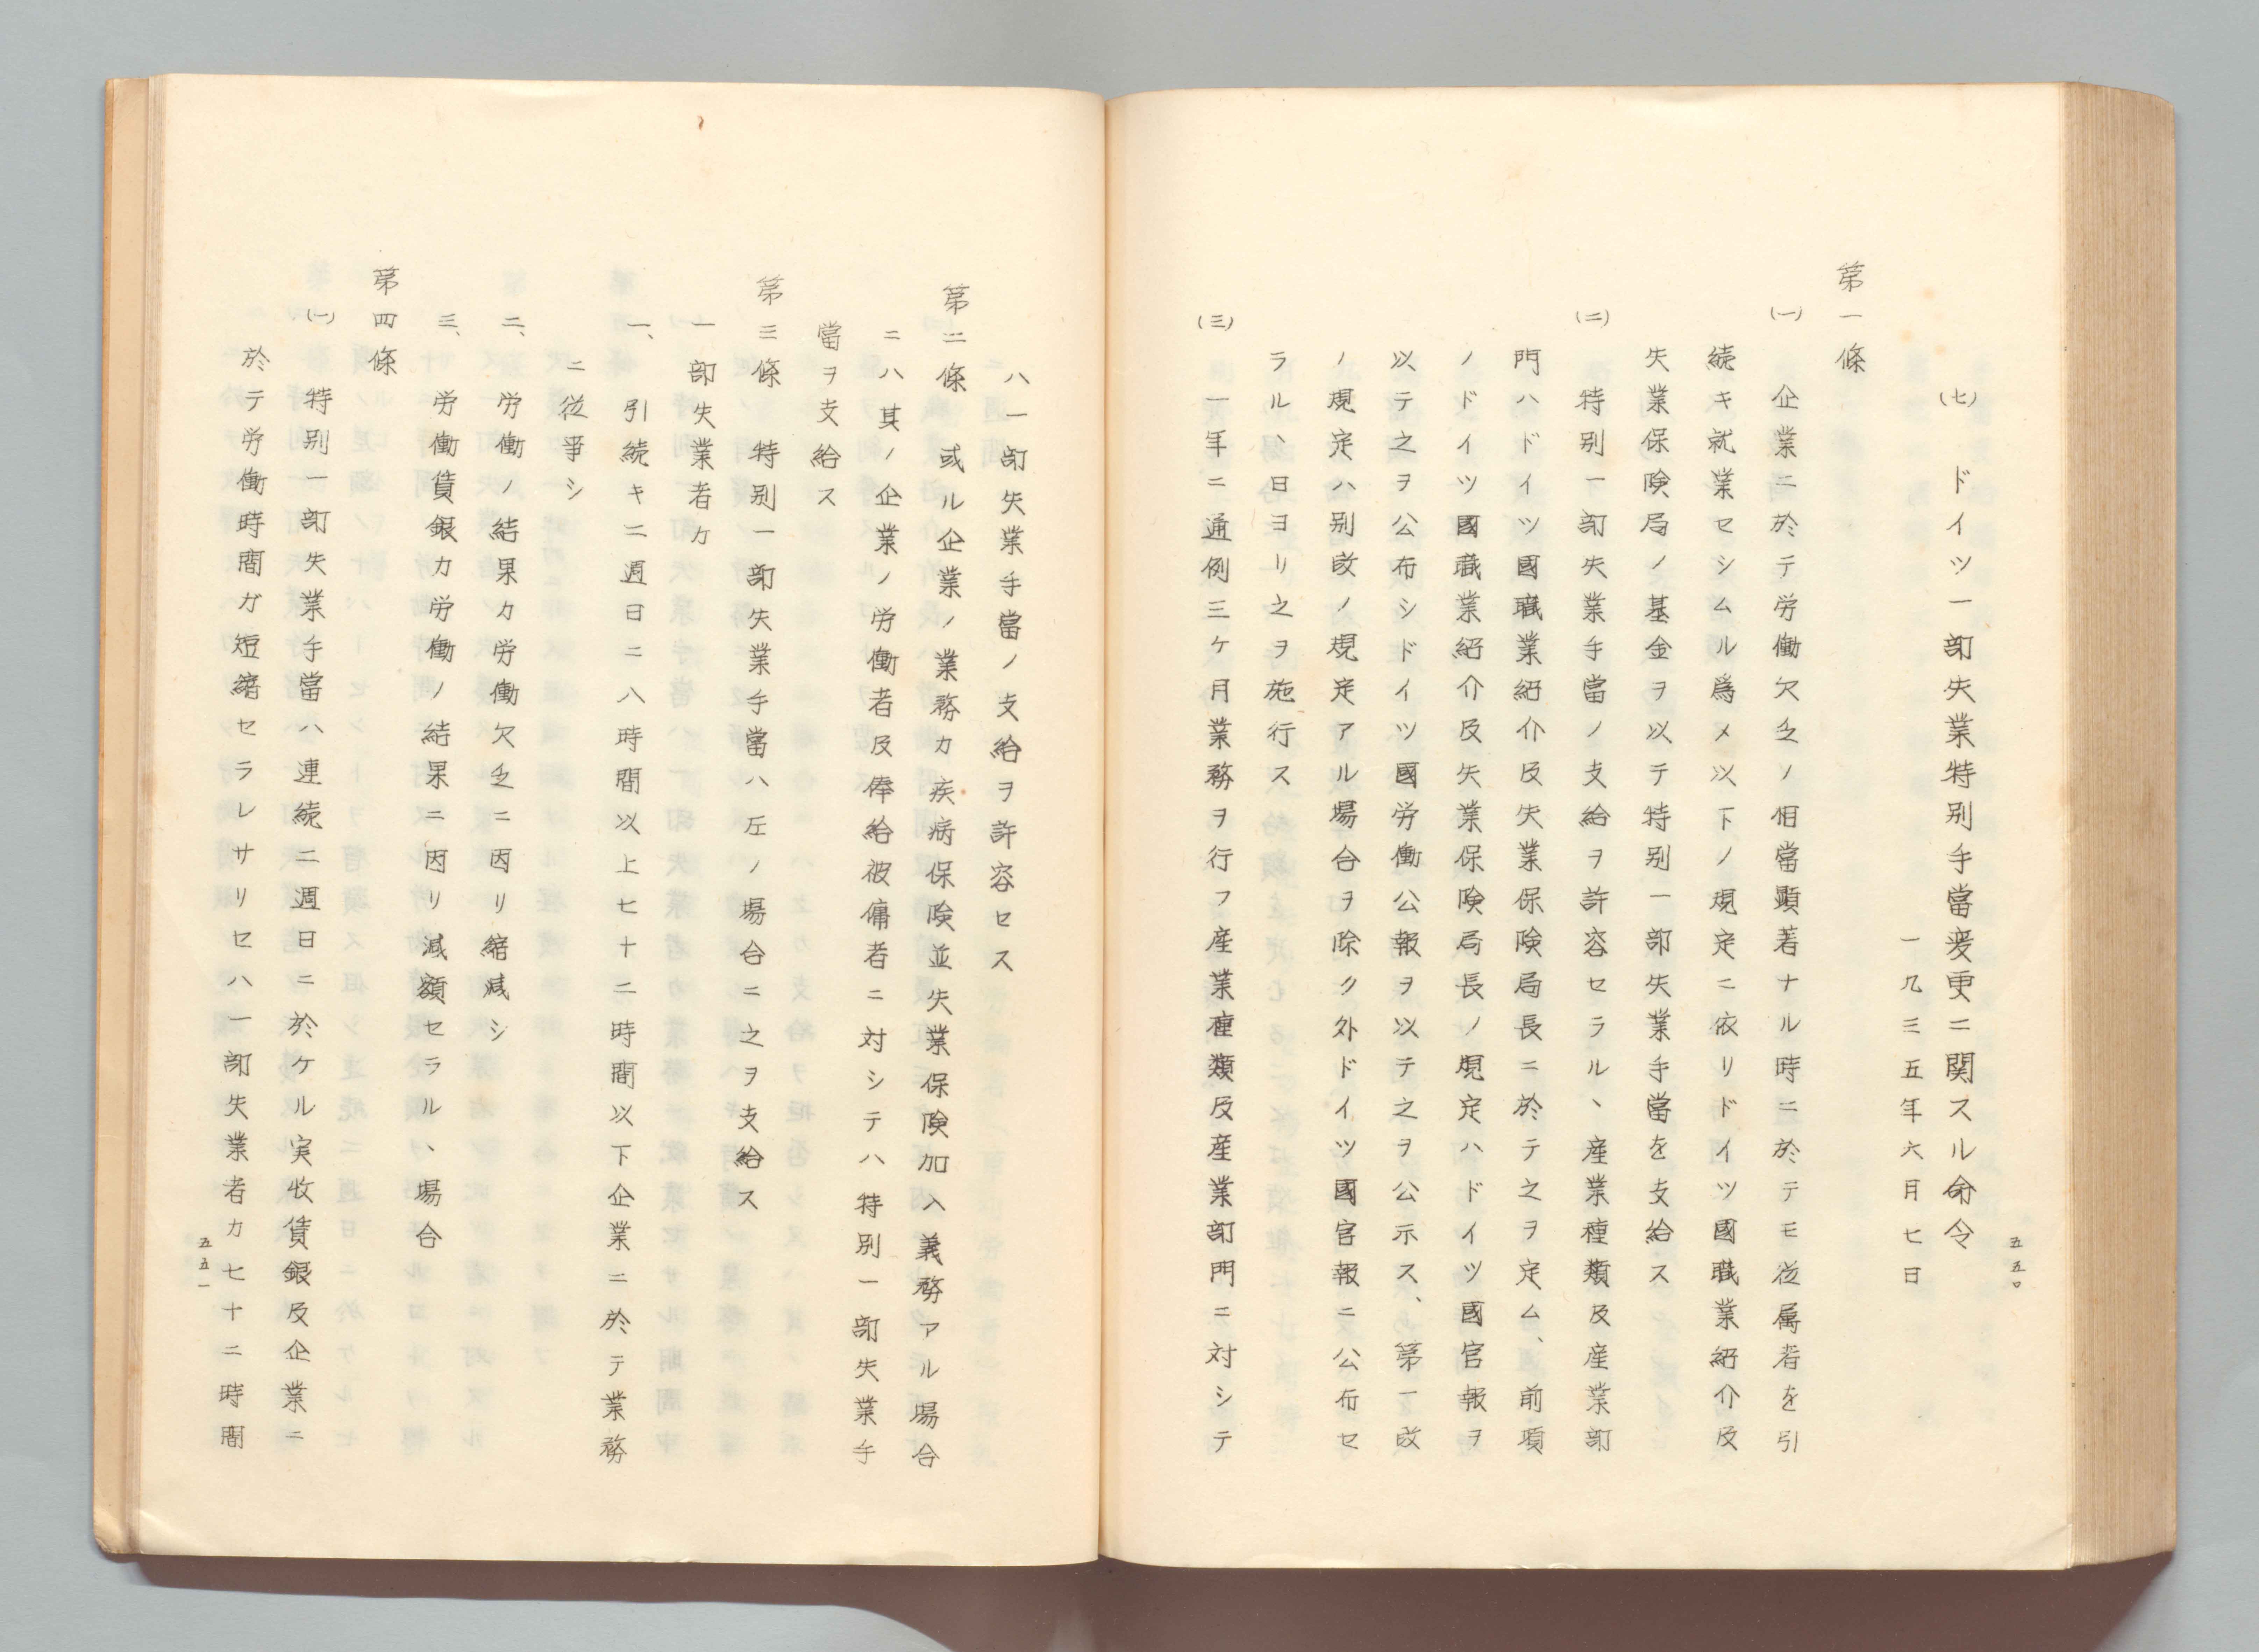 五五〇
(七) ドイツ一部失業特別手當変更ニ関スル命令
一九三五年六月七日
第一條
(一) 企業ニ於テ労働欠乏ノ相當顕著ナル時ニ於テモ従属者を引
続キ就業セシムル爲メ以下ノ規定ニ依リドイツ國職業紹介及
失業保険局ノ基金ヲ以テ特別一部失業手當を支給ス
(二) 特別一部失業手當ノ支給ヲ許容セラル、産業種類及産業部
門ハドイツ國職業紹介及失業保険局長ニ於テ之ヲ定ム、前項
ノドイツ國職業紹介及失業保険局長ノ規定ハドイツ國官報ヲ
以テ之ヲ公布シドイツ國労働公報ヲ以テ之ヲ公示ス、第一改
ノ規定ハ別改ノ規定アル場合ヲ除ク外ドイツ國官報ニ公布セ
ラル、日ヨリ之ヲ施行ス
(三) 一年ニ通例三ケ月業務ヲ行フ産業種類及産業部門ニ対シテ
ハ一部失業手當ノ支給ヲ許容セス
第二條 或ル企業ノ業務カ疾病保険並失業保険加入義務アル場合
ニハ其ノ企業ノ労働者及俸給被傭者ニ対シテハ特別一部失業手
當ヲ支給ス
第三條 特別一部失業手當ハ左ノ場合ニ之ヲ支給ス
一部失業者カ
一、引続キ二週日ニ八時間以上七十二時間以下企業ニ於テ業務
ニ従事シ
二、労働ノ結果カ労働欠乏ニ因リ縮減シ
三、労働賃銀カ労働ノ結果ニ因リ減額セラル、場合
第四條
(一)、特別一部失業手當ハ連続二週日ニ於ケル実收賃銀及企業ニ
於テ労働時間ガ短縮セラレサリセハ一部失業者カ七十二時間
五五一